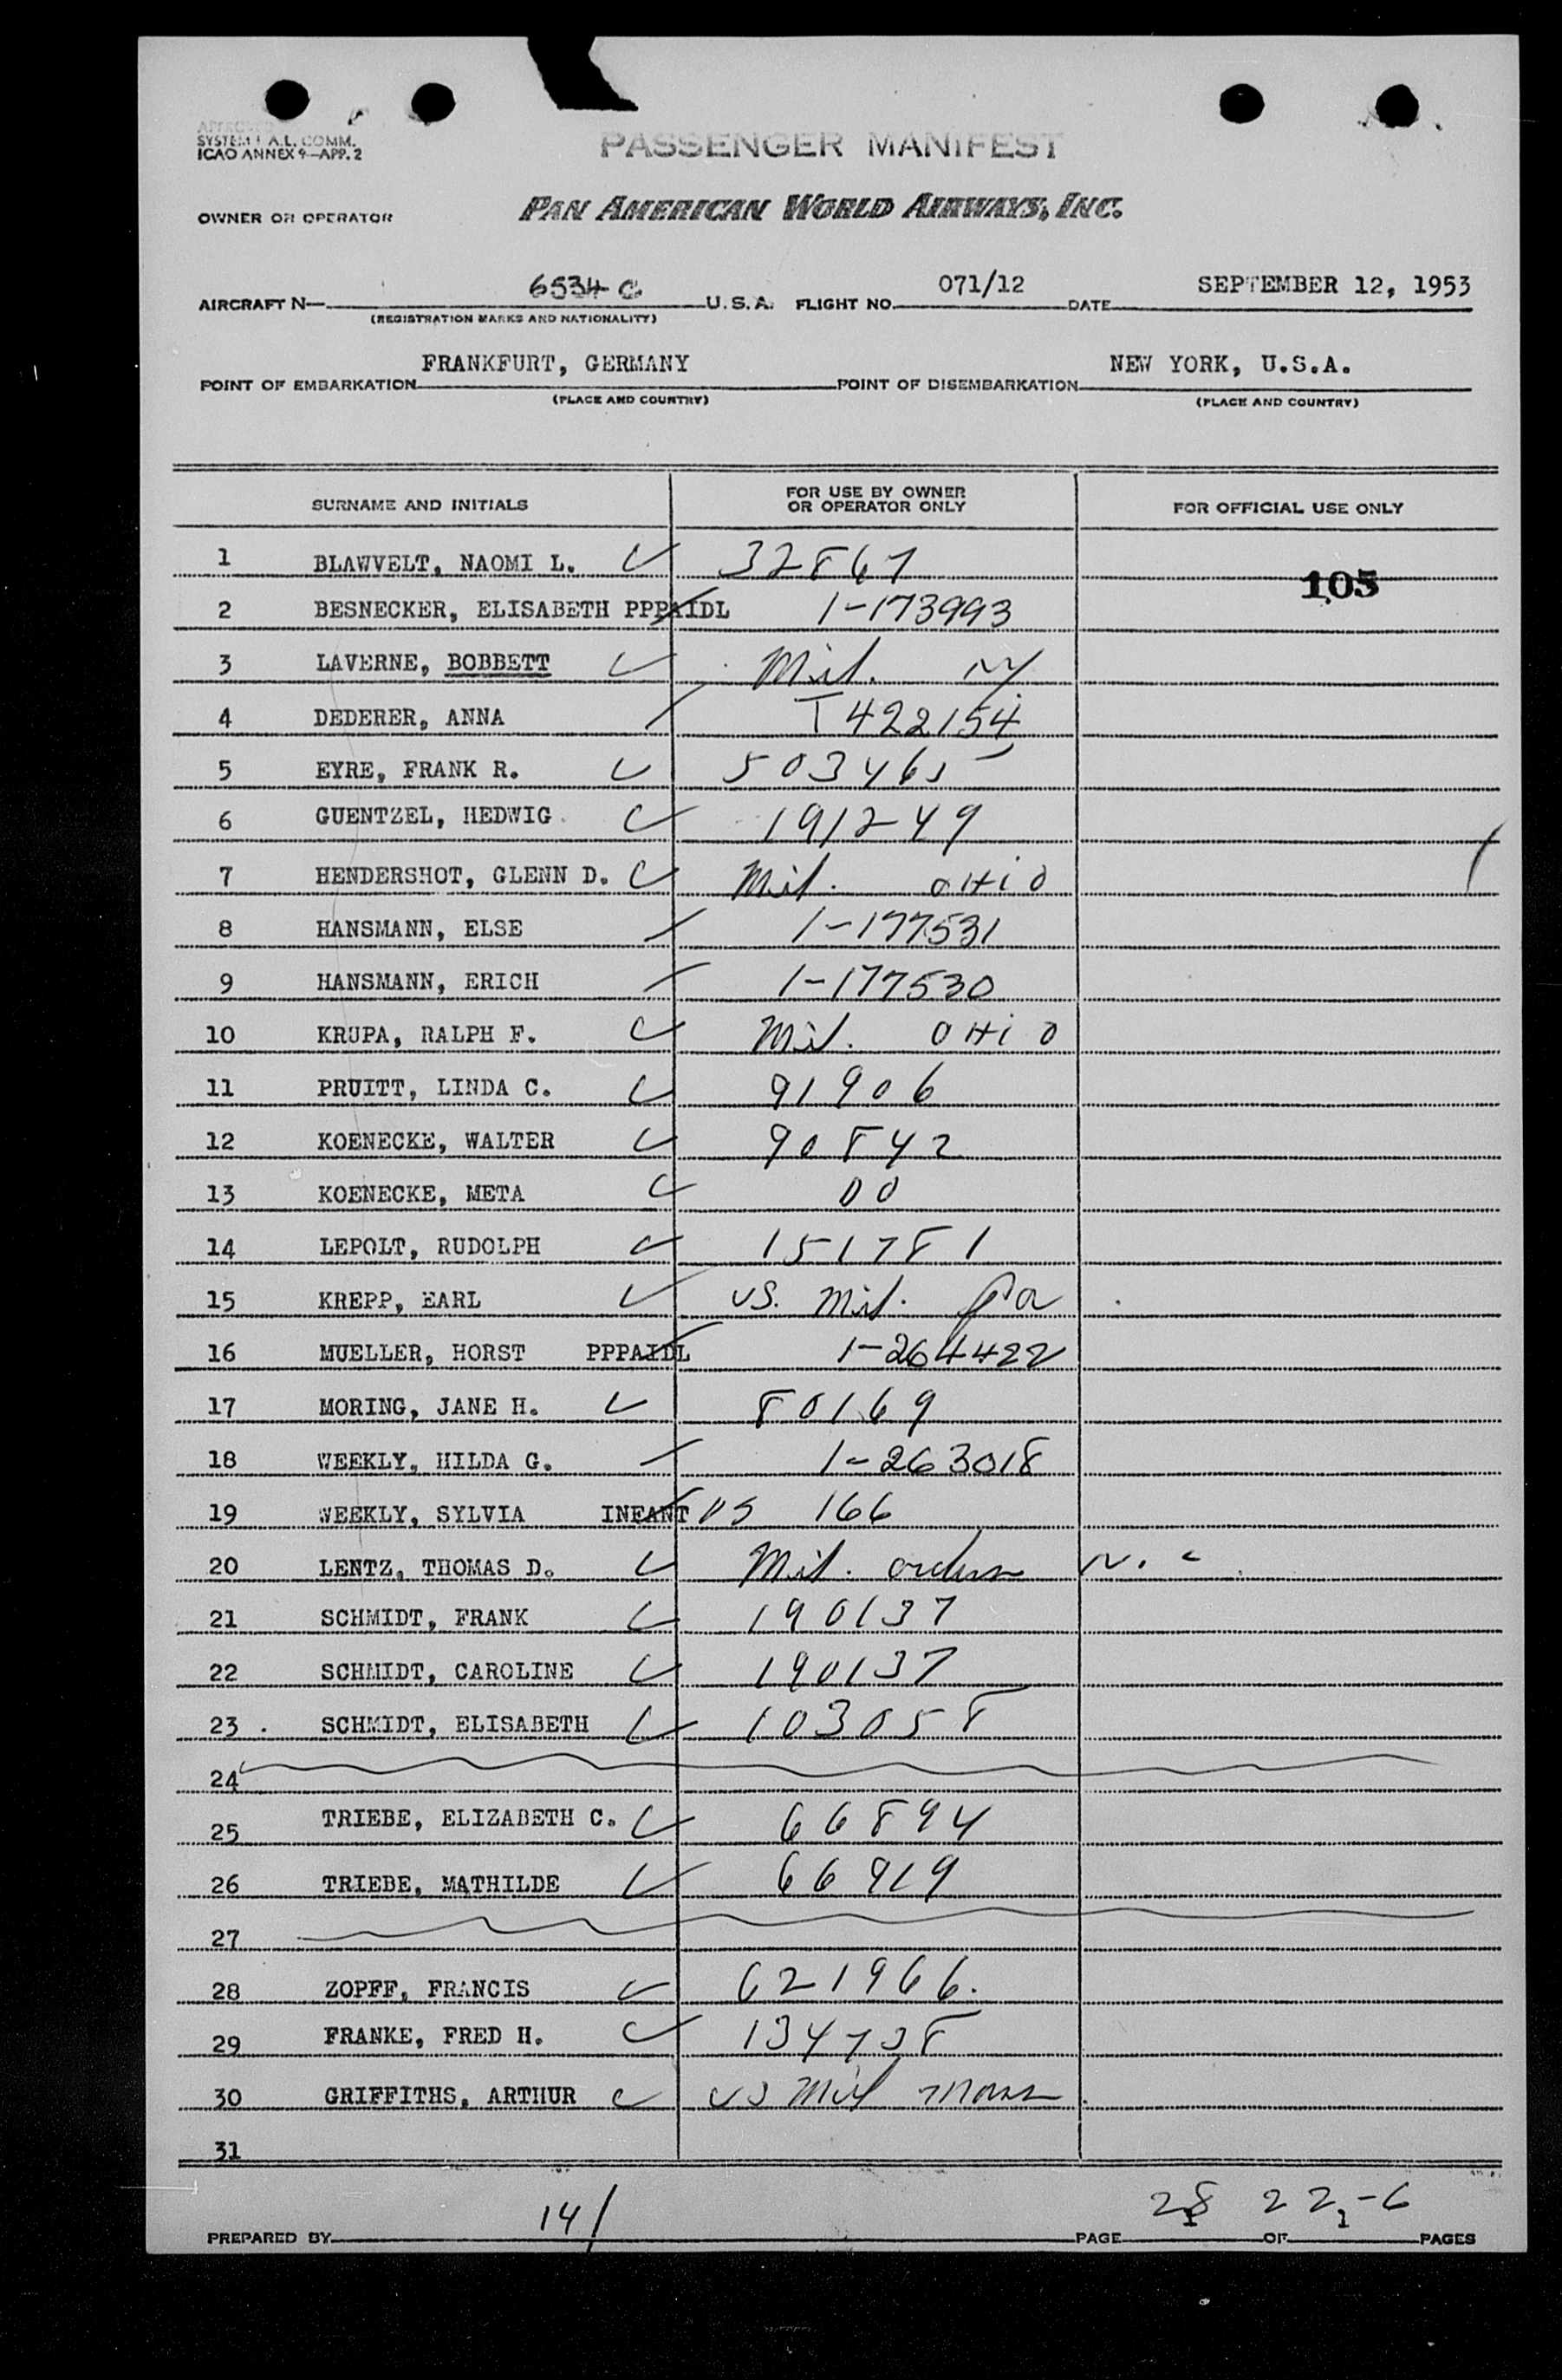 SYSTEM A.L. COMM.
ICAO ANNEX 9—APP. 2
PASSENGER MANIFEST
OWNER OR OPERATOR PAN AMERICAN WORLD AIRWAYS, INC.
AIRCRAFT N— 6534 C U.S.A. FLIGHT NO. 071/12 DATE SEPTEMBER 12, 1953
(REGISTRATION MARKS AND NATIONALITY)
POINT OF EMBARKATION FRANKFURT, GERMANY POINT OF DISEMBARKATION NEW YORK, U.S.A.
(PLACE AND COUNTRY) (PLACE AND COUNTRY)
SURNAME AND INITIALS FOR USE BY OWNER OR OPERATOR ONLY FOR OFFICIAL USE ONLY
1 BLAWVELT, NAOMI L. 32867
105
2 BESNECKER, ELISABETH PPPAIDL 1-173993
3 LAVERNE, BOBBETT Mil. NY
4 DEDERER, ANNA T 422154
5 EYRE, FRANK R. 503465
6 GUENTZEL, HEDWIG 191249
7 HENDERSHOT, GLENN D. Mil. OHIO
8 HANSMANN, ELSE 1-177531
9 HANSMANN, ERICH 1-177530
10 KRUPA, RALPH F. Mil. OHIO
11 PRUITT, LINDA C. 91906
12 KOENECKE, WALTER 90842
13 KOENECKE, META DO
14 LEPOLT, RUDOLPH 151781
15 KREPP, EARL US. Mil. Pa
16 MUELLER, HORST PPPAIDL 1-264422
17 MORING, JANE H. 80169
18 WEEKLY, HILDA G. 1-263018
19 WEEKLY, SYLVIA INFANT US 166
20 LENTZ, THOMAS D. Mil. orders N. C
21 SCHMIDT, FRANK 190137
22 SCHMIDT, CAROLINE 190137
23 . SCHMIDT, ELISABETH 103058
24
25 TRIEBE, ELIZABETH C. 66894
26 TRIEBE, MATHILDE 66919
27
28 ZOPFF, FRANCIS 621966.
29 FRANKE, FRED H. 134738
30 GRIFFITHS, ARTHUR US Mil Mass
31
PREPARED BY 14/ PAGE 28 1 OF 22-6 1 PAGES